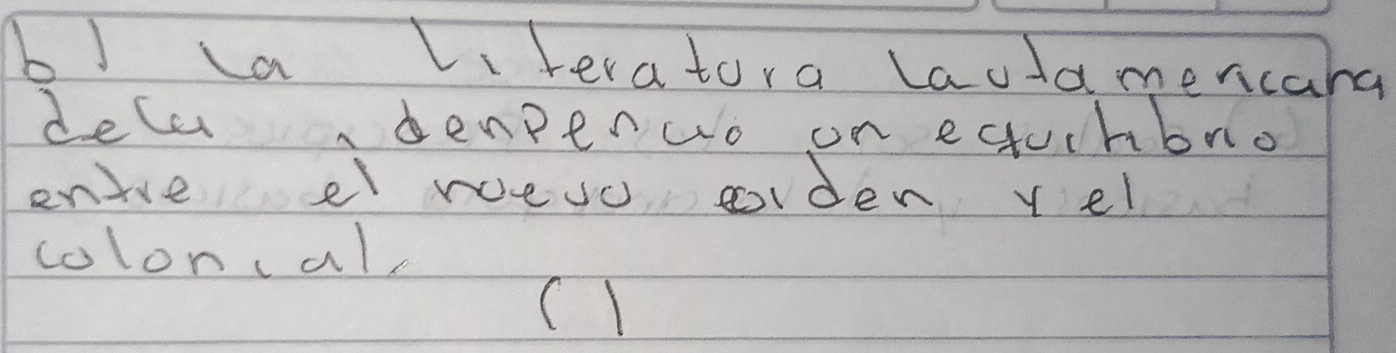 b) La Literatura latinoamericana
de la independencia un equilibrio
entre el nuevo orden y el
colonial.
( )